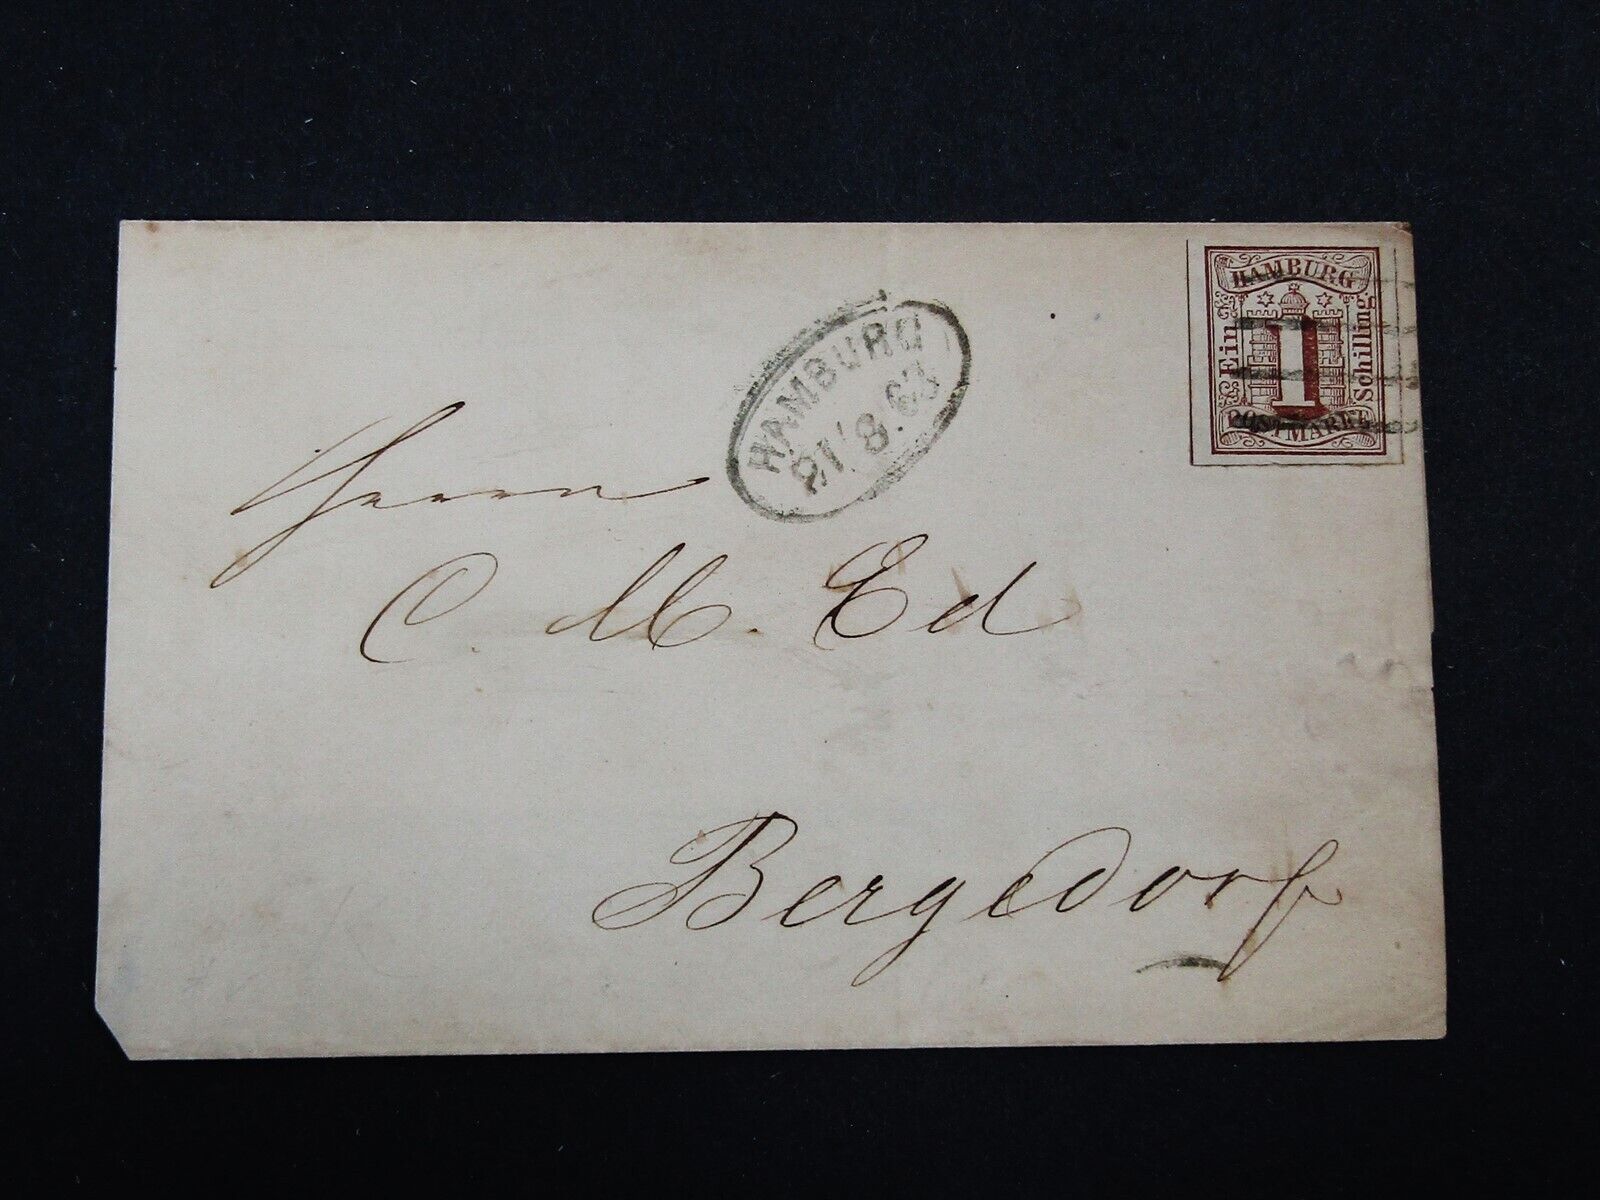 HAMBURG
Ein
1
Schilling
POSTMARKE
HAMBURG
21.8.63
Herrn
C. M. Ed
Bergedorf